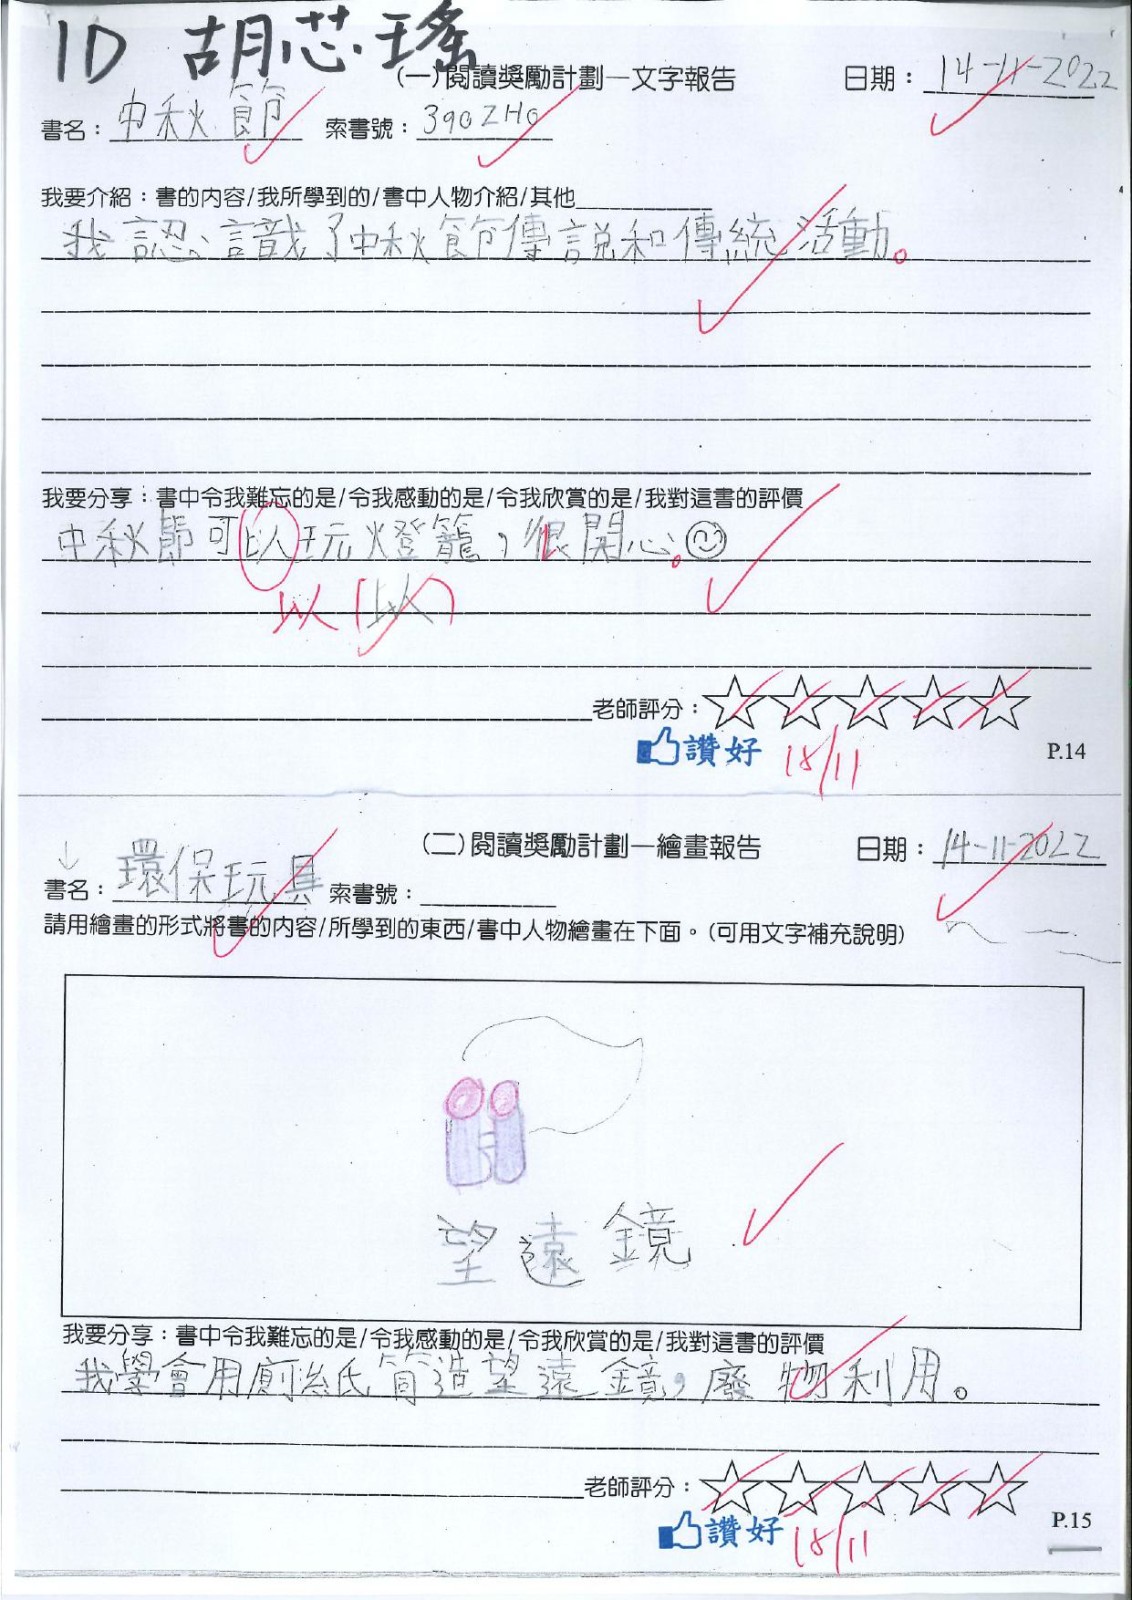 1D 胡芯瑤
(一)閱讀獎勵計劃—文字報告 日期：14-11-2022
書名：中秋節 索書號：390 ZHO
我要介紹：書的內容/我所學到的/書中人物介紹/其他
我認識了中秋節傳說和傳統活動。
我要分享：書中令我難忘的是/令我感動的是/令我欣賞的是/我對這書的評價
中秋節可以玩燈籠，很開心。
以(以)
老師評分：☆☆☆☆☆
讚好 18/11
P.14
(二)閱讀獎勵計劃—繪畫報告 日期：14-11-2022
書名：環保玩具 索書號：
請用繪畫的形式將書的內容/所學到的東西/書中人物繪畫在下面。(可用文字補充說明)
望遠鏡
我要分享：書中令我難忘的是/令我感動的是/令我欣賞的是/我對這書的評價
我學會用廁紙筒造望遠鏡，廢物利用。
老師評分：☆☆☆☆☆
讚好 18/11
P.15